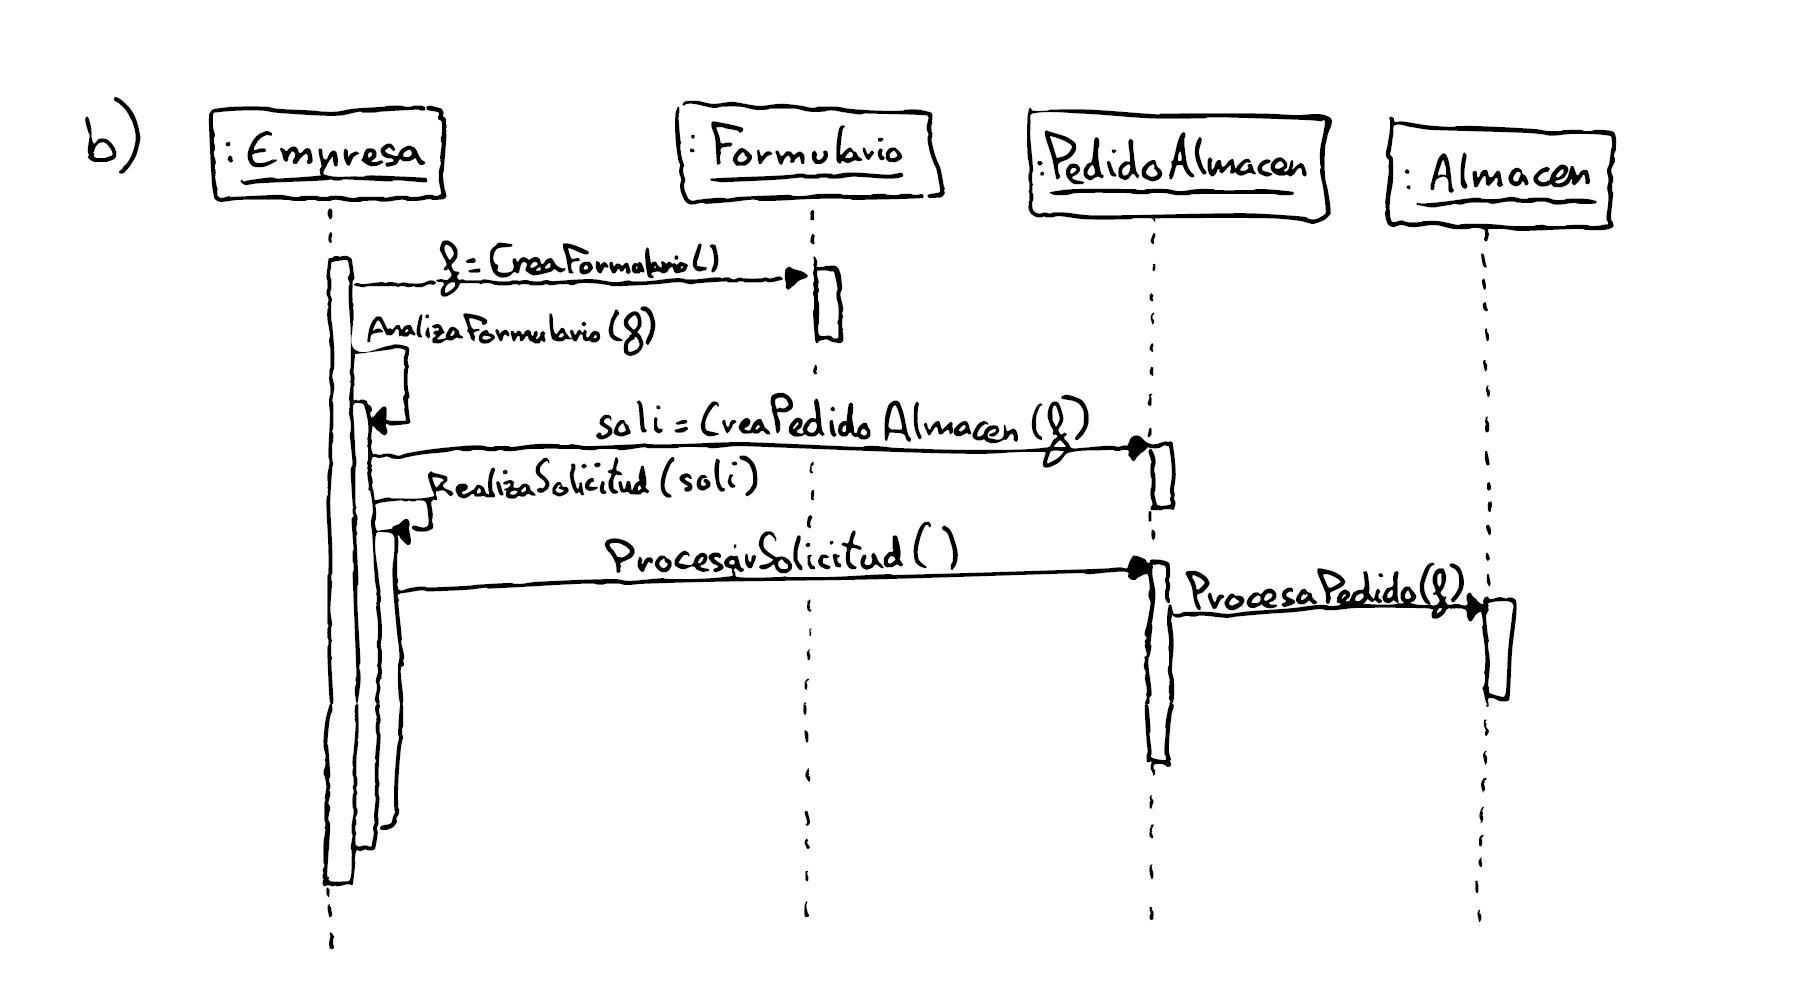 b)
: Empresa
: Formulario
:PedidoAlmacen
: Almacen
f = CreaFormulario()
AnalizaFormulario(f)
soli = CreaPedidoAlmacen(f)
RealizaSolicitud(soli)
ProcesarSolicitud()
ProcesaPedido(f)